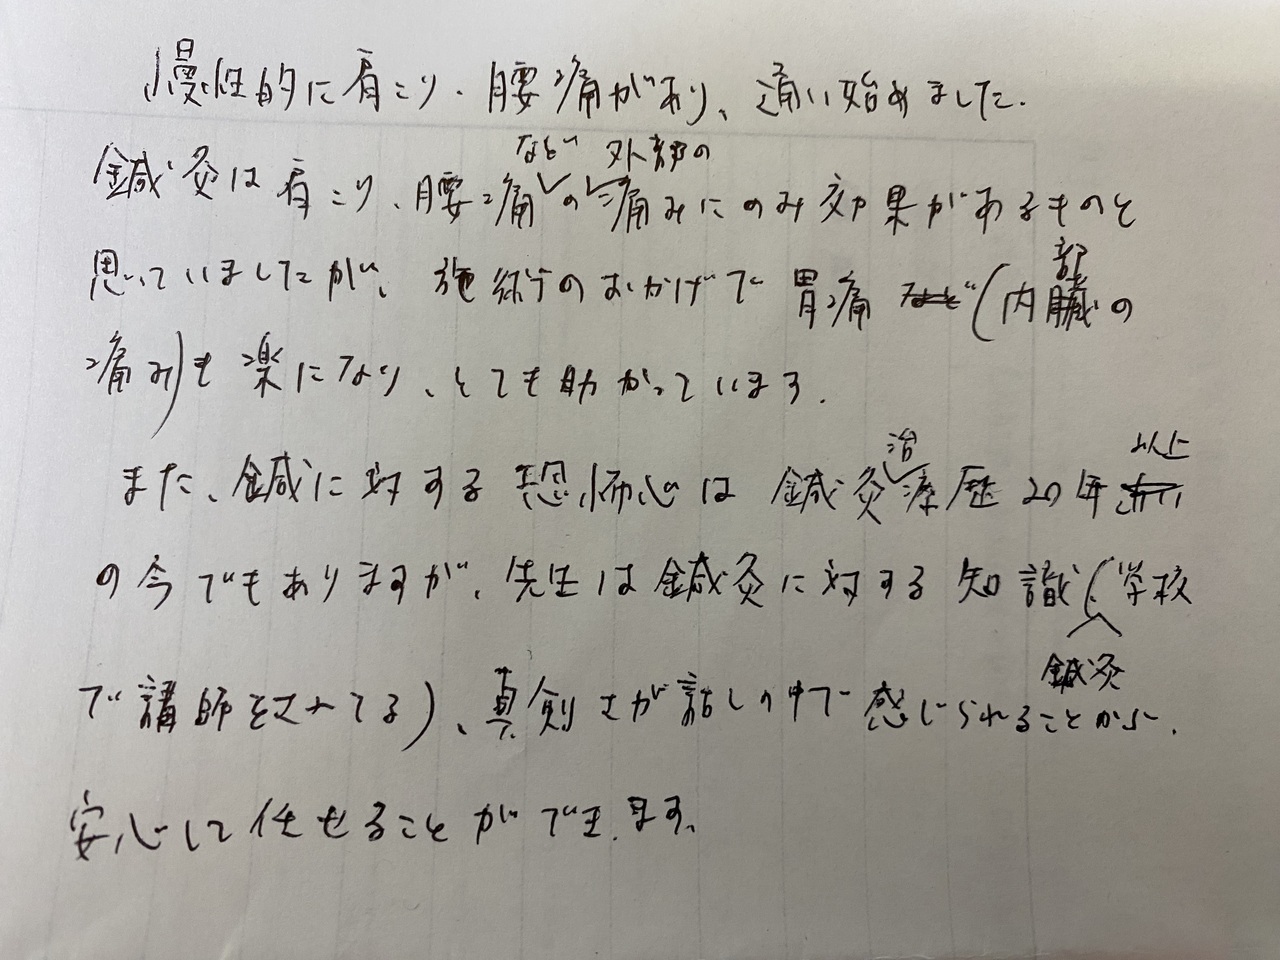 慢性的に肩こり、腰痛があり、通い始めました。
鍼灸は肩こり、腰痛などの外部の痛みにのみ効果があるものと
思っていましたが、施術のおかげで胃痛(内部の
痛み)も楽になり、とても助かっています。
また、鍼に対する恐怖心は鍼灸治療歴20年以上
の今でもありますが、先生は鍼灸に対する知識(鍼灸学校
で講師をされてる)、真剣さが話しの中で感じられることから、
安心して任せることができます。